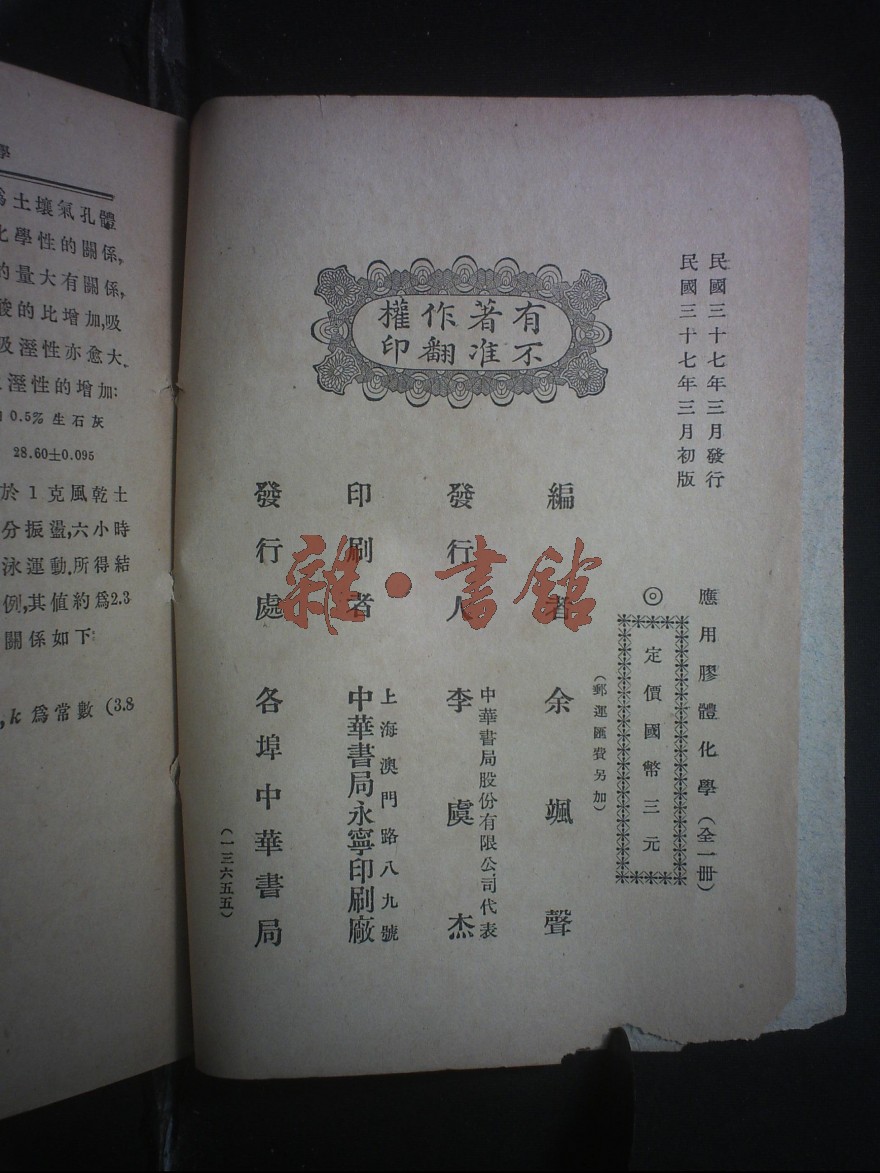 民國三十七年三月發行
民國三十七年三月初版
有著作權
不准翻印
應用膠體化學(全一冊)
◎定價國幣三元
(郵運匯費另加)
編者 余颯聲
發行人 中華書局股份有限公司代表
李虞杰
印刷者 上海澳門路八九號
中華書局永寧印刷廠
發行處 各埠中華書局
(一三六五五)
雜·書館
學
為土壤氣孔體
化學性的關係,
的量大有關係,
酸的比增加,吸
吸溼性亦愈大.
溼性的增加:
0.5% 生石灰
28.60±0.095
於1克風乾土
分振盪,六小時
泳運動.所得結
例,其值約爲2.3
關係如下:
,k爲常數 (3.8